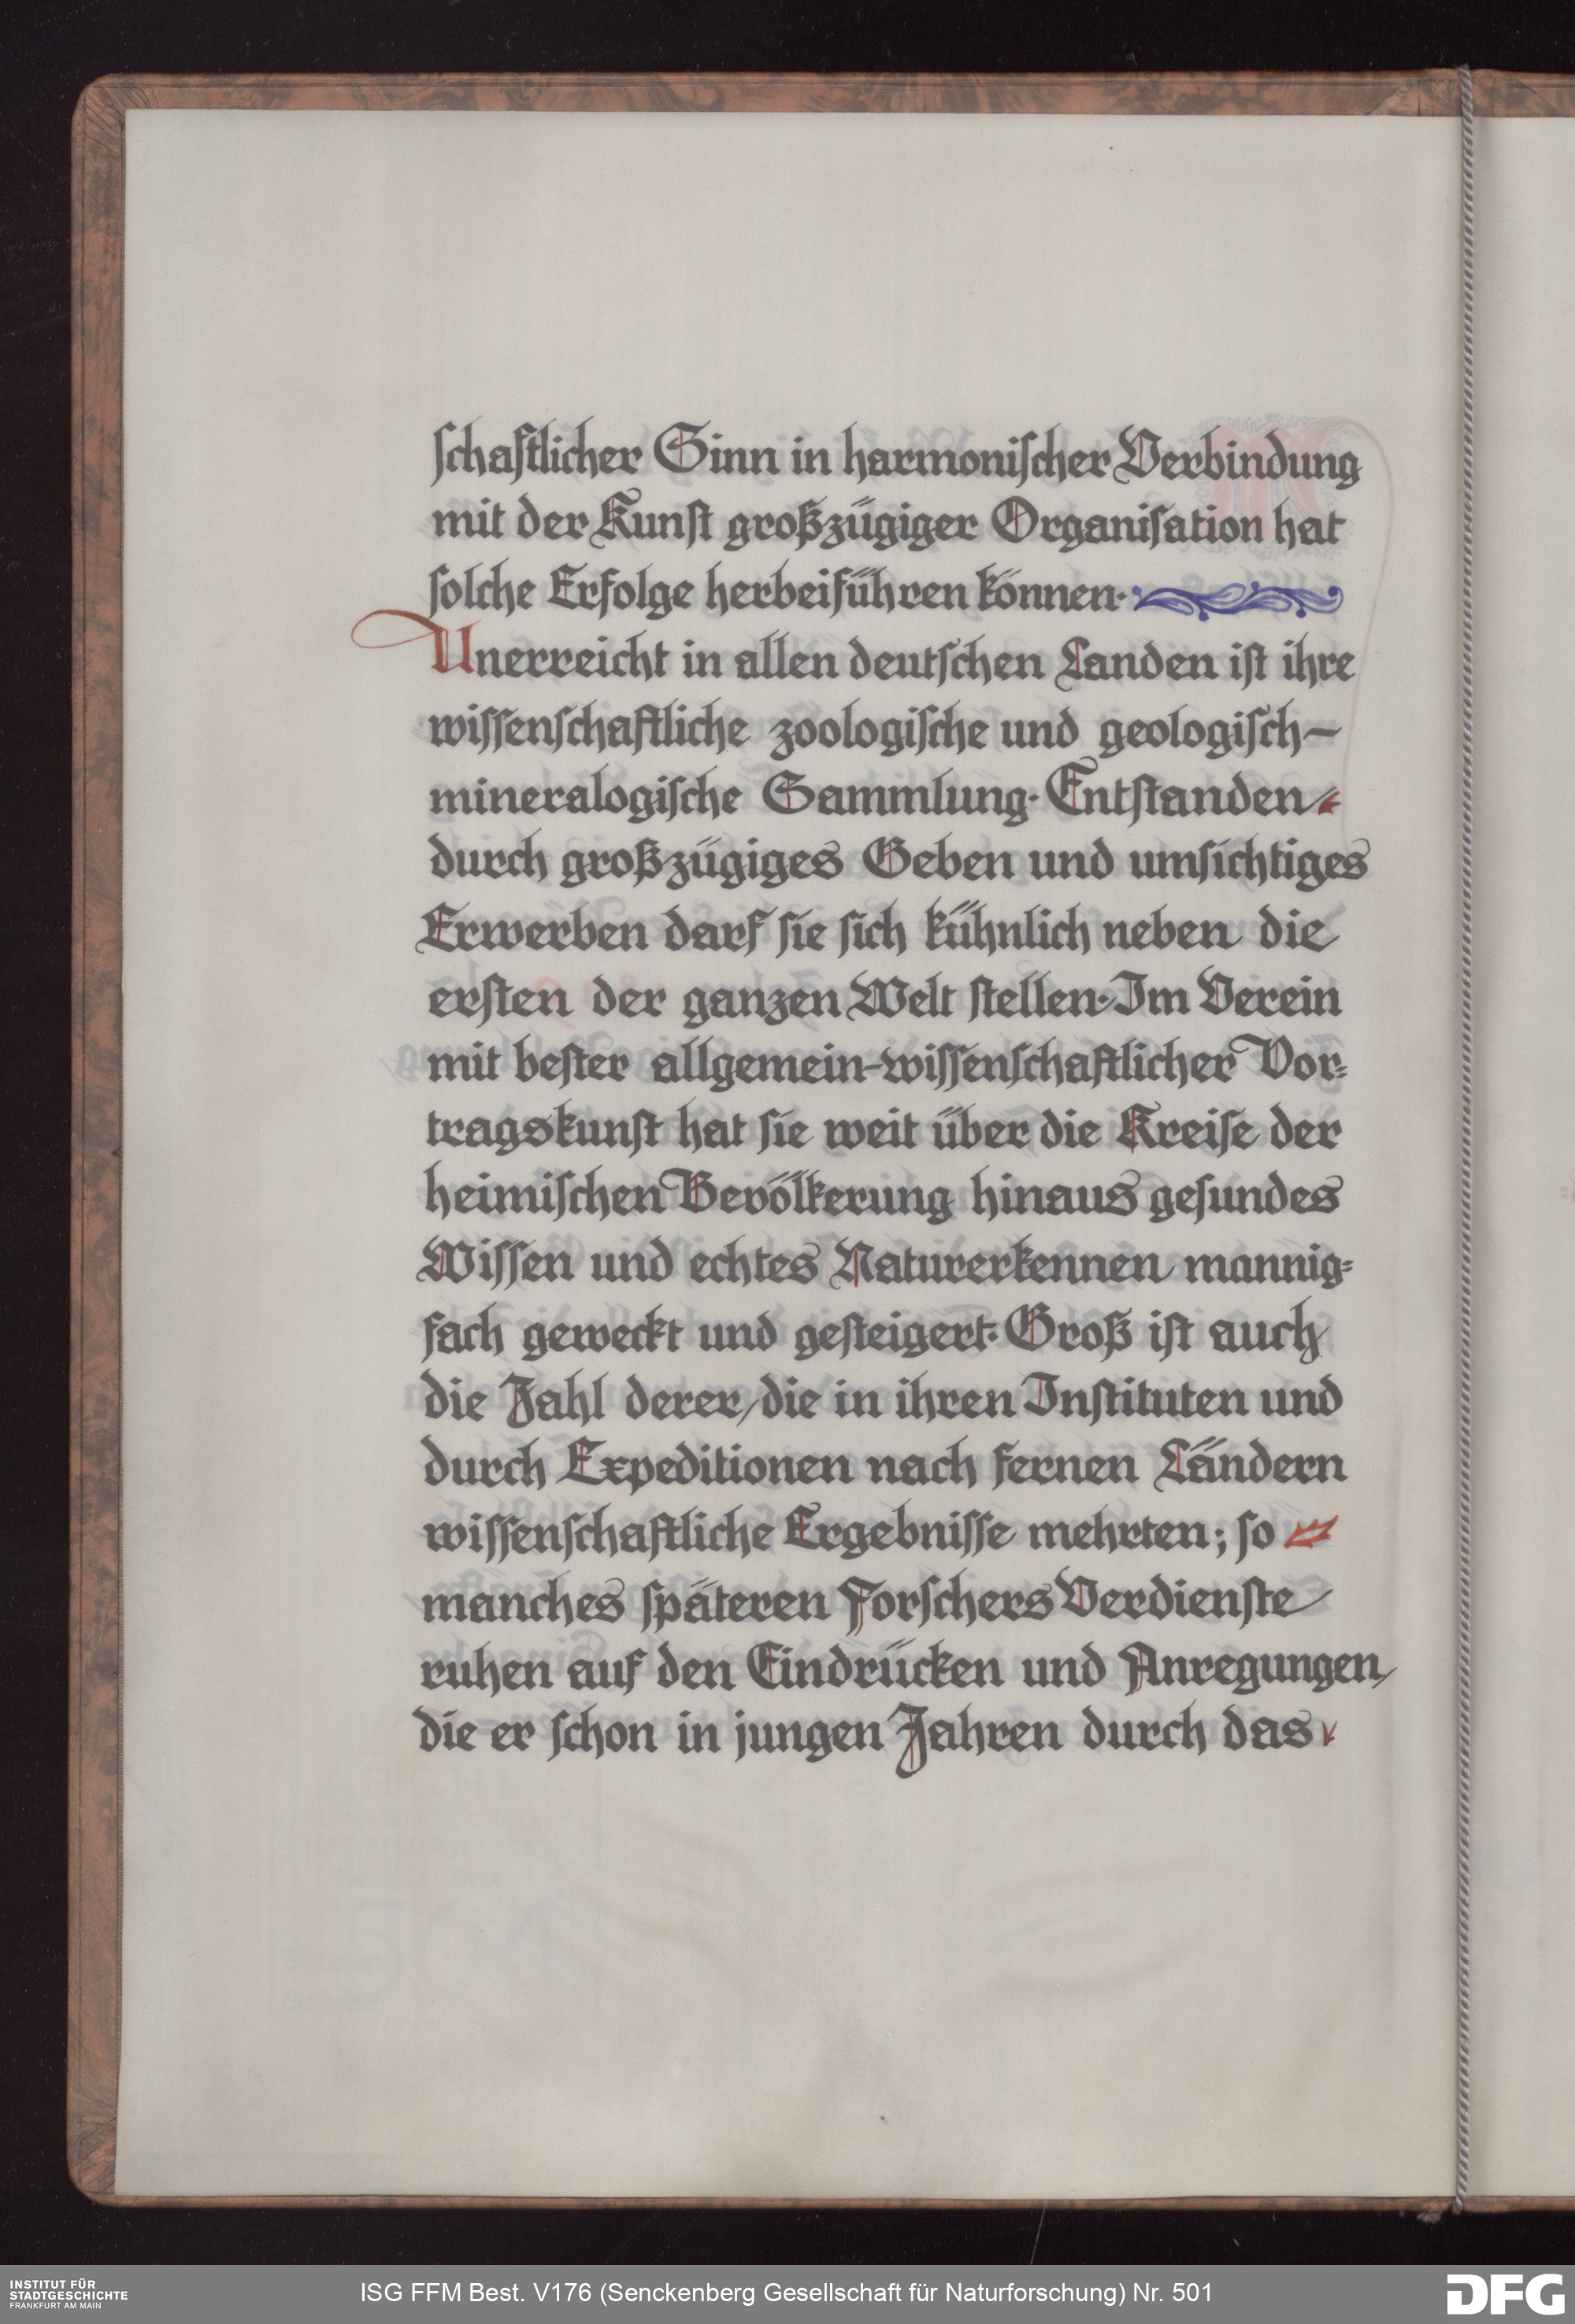 ſchaftlicher Sinn in harmoniſcher Verbindung
mit der Kunſt großzügiger Organiſation hat
ſolche Erfolge herbeiführen können·
Unerreicht in allen deutſchen Landen iſt ihre
wiſſenſchaftliche zoologiſche und geologiſch-
mineralogiſche Sammlung· Entſtanden
durch großzügiges Geben und umſichtiges
Erwerben darf ſie ſich kühnlich neben die
erſten der ganzen Welt ſtellen· Im Verein
mit beſter allgemein-wiſſenſchaftlicher Vor⸗
tragskunſt hat ſie weit über die Kreiſe der
heimiſchen Bevölkerung hinaus geſundes
Wiſſen und echtes Naturerkennen mannig⸗
fach geweckt und geſteigert· Groß iſt auch
die Zahl derer, die in ihren Inſtituten und
durch Expeditionen nach fernen Ländern
wiſſenſchaftliche Ergebniſſe mehrten; ſo
manches ſpäteren Forſchers Verdienſte
ruhen auf den Eindrücken und Anregungen,
die er ſchon in jungen Jahren durch das
INSTITUT FÜR
STADTGESCHICHTE
FRANKFURT AM MAIN
ISG FFM Best. V176 (Senckenberg Gesellschaft für Naturforschung) Nr. 501
DFG